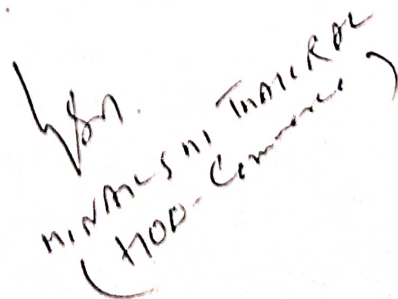 MINAKSHI THAKRAL
(HOD-Commerce)